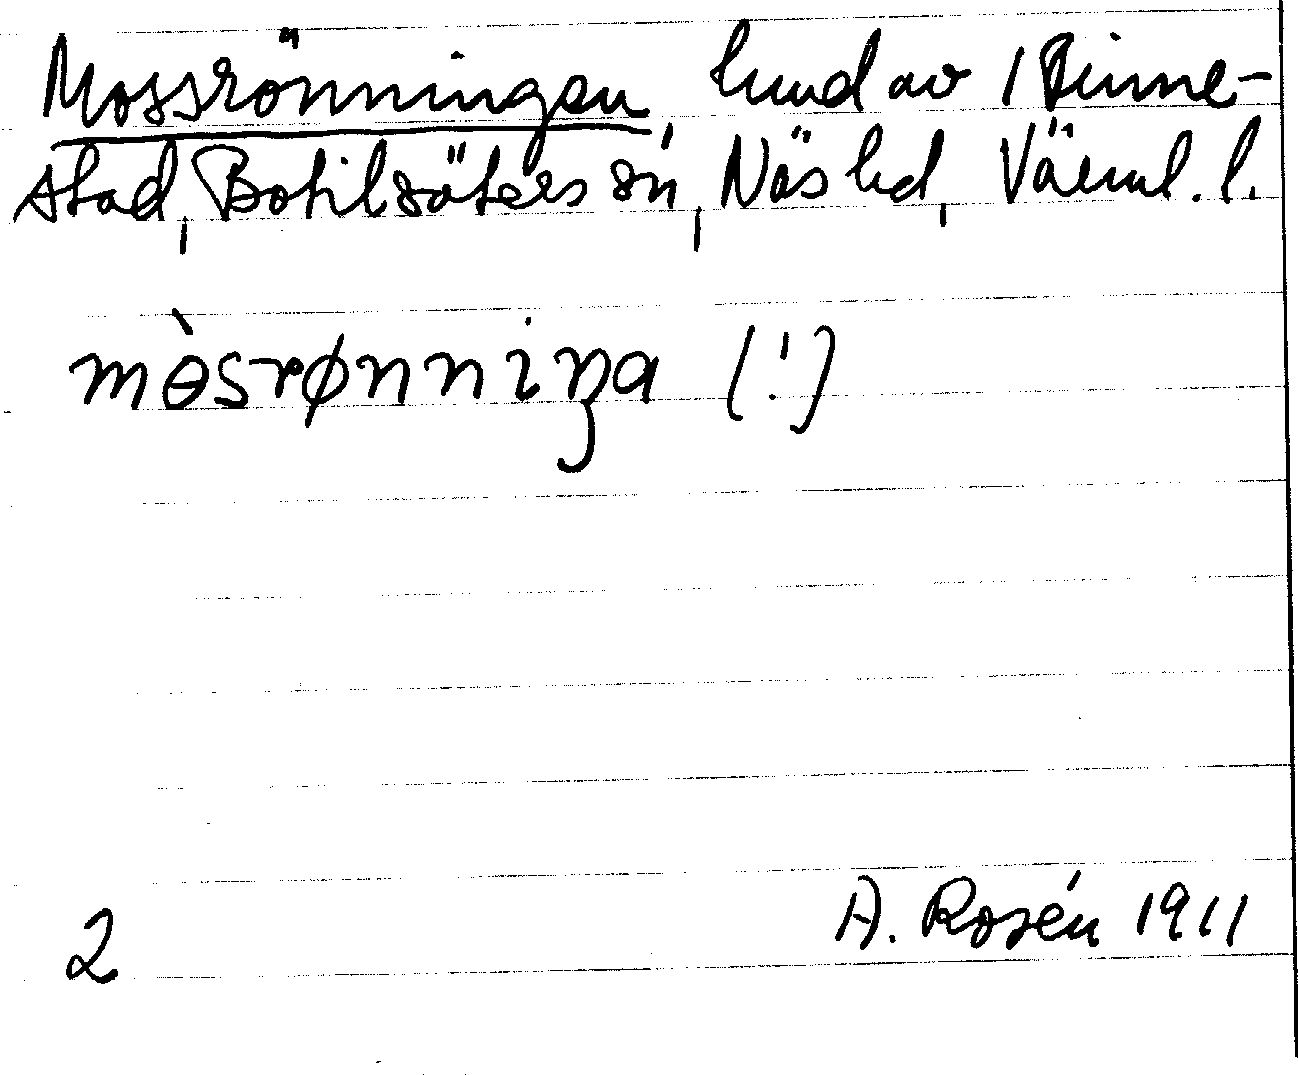 Mossrönningen, hmd av 1 Finne-
stad, Botilsäters sn, Näs hd, Värml. l.
mɵ̀srønniŋa (!)
2 A. Rosén 1911